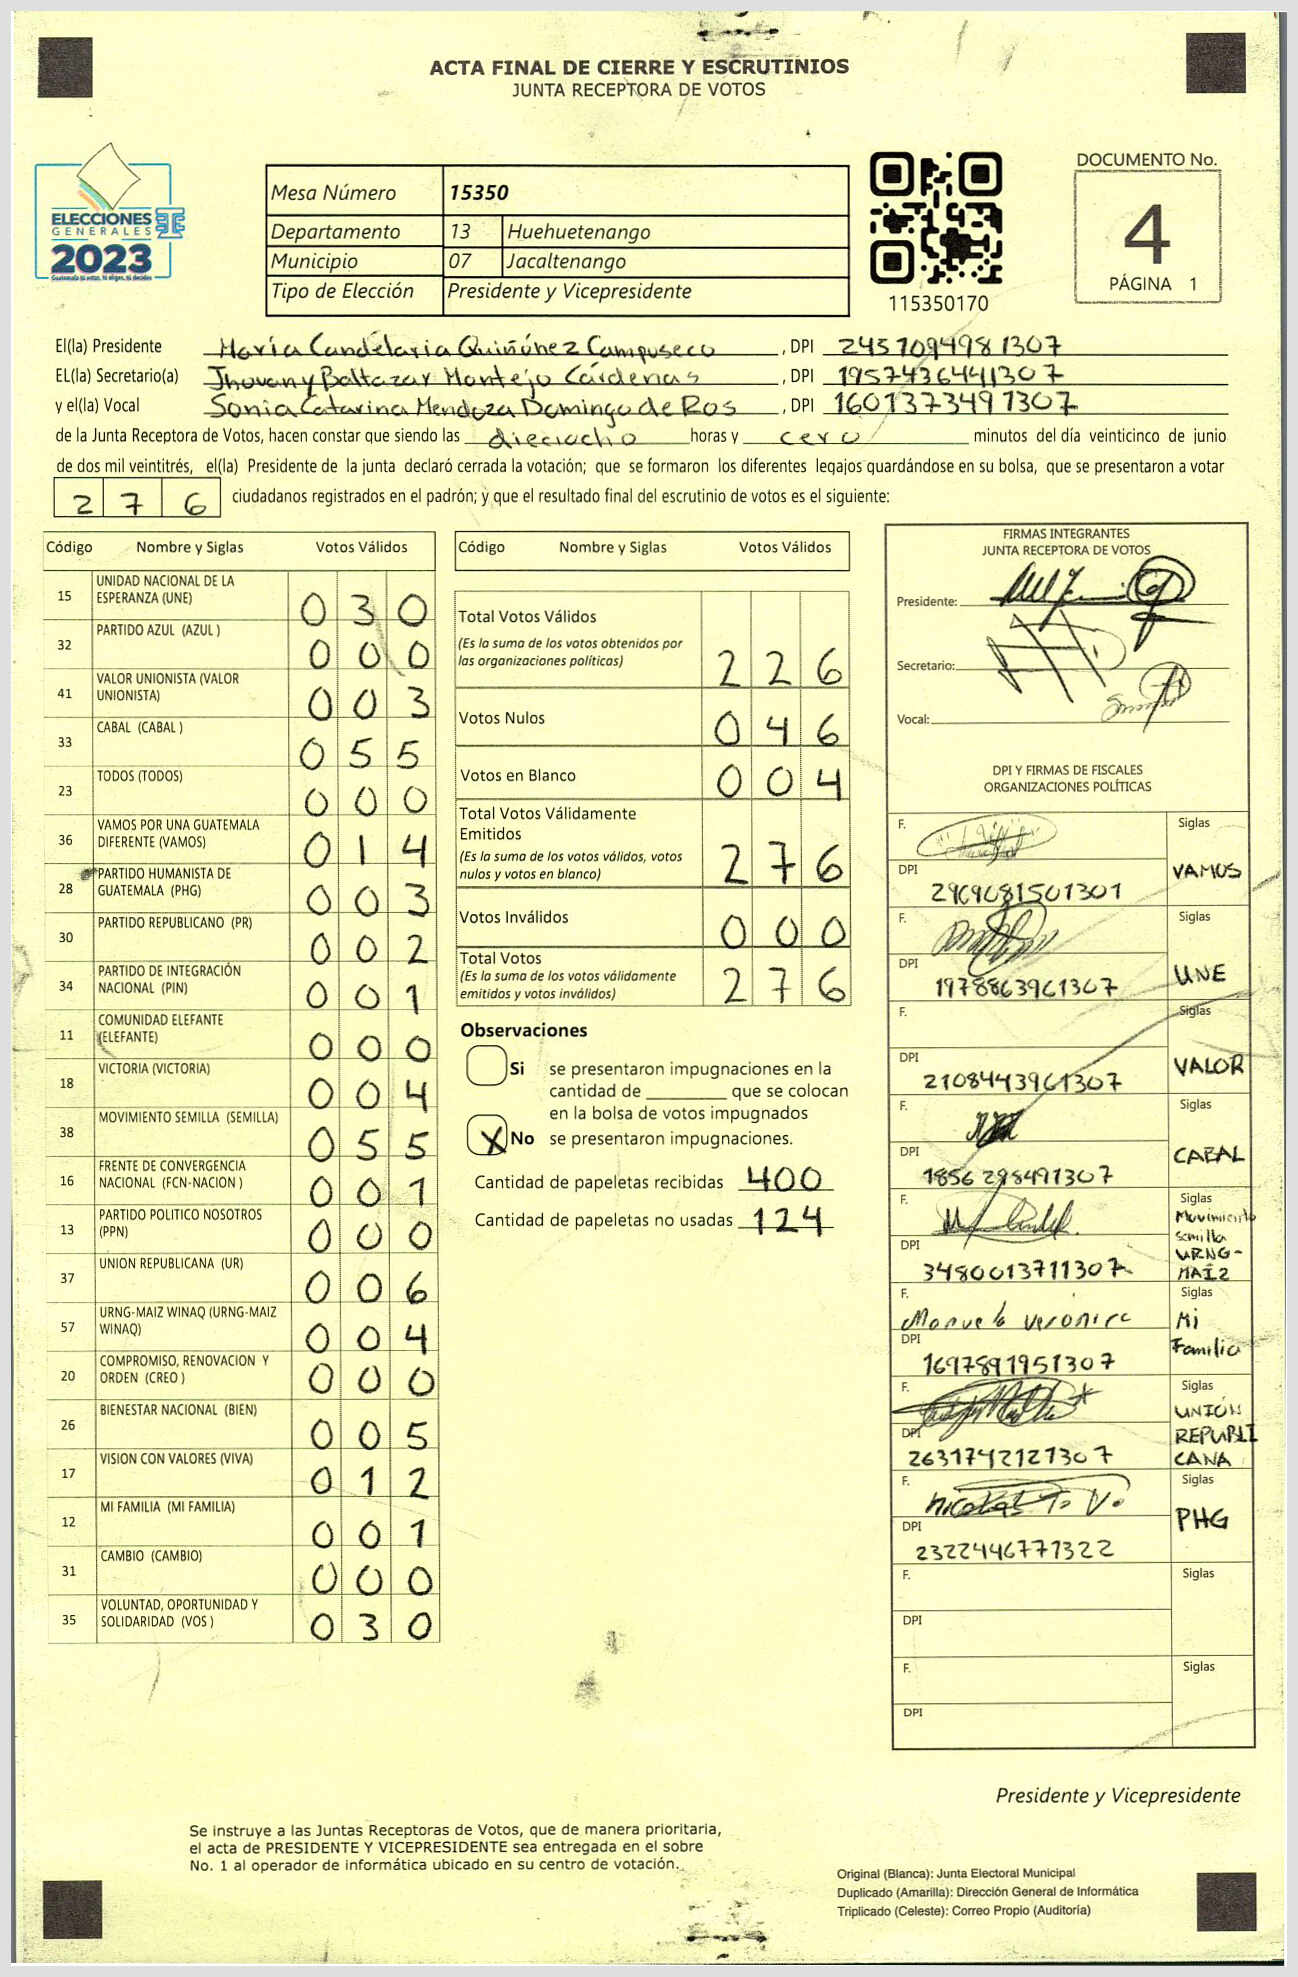 ACTA FINAL DE CIERRE Y ESCRUTINIOS
JUNTA RECEPTORA DE VOTOS
ELECCIONES
GENERALES
2023
Mesa Número 15350
Departamento 13 Huehuetenango
Municipio 07 Jacaltenango
Tipo de Elección Presidente y Vicepresidente
115350170
DOCUMENTO No.
4
PÁGINA 1
El(la) Presidente María Candelaria Quiñónez Campuseco, DPI 2457094981307
EL(la) Secretario(a) Jhovany Baltazar Montejo Cárdenas, DPI 1957436441307
y el(la) Vocal Sonia Catarina Mendoza Domingo de Ros, DPI 1601373491307
de la Junta Receptora de Votos, hacen constar que siendo las dieciocho horas y cero minutos del día veinticinco de junio
de dos mil veintitrés, el(la) Presidente de la junta declaró cerrada la votación; que se formaron los diferentes legajos guardándose en su bolsa, que se presentaron a votar
276 ciudadanos registrados en el padrón; y que el resultado final del escrutinio de votos es el siguiente:
Código Nombre y Siglas Votos Válidos
15 UNIDAD NACIONAL DE LA ESPERANZA (UNE) 030
32 PARTIDO AZUL (AZUL ) 000
41 VALOR UNIONISTA (VALOR UNIONISTA) 003
33 CABAL (CABAL ) 055
23 TODOS (TODOS) 000
36 VAMOS POR UNA GUATEMALA DIFERENTE (VAMOS) 014
28 PARTIDO HUMANISTA DE GUATEMALA (PHG) 003
30 PARTIDO REPUBLICANO (PR) 002
34 PARTIDO DE INTEGRACIÓN NACIONAL (PIN) 001
11 COMUNIDAD ELEFANTE (ELEFANTE) 000
18 VICTORIA (VICTORIA) 004
38 MOVIMIENTO SEMILLA (SEMILLA) 055
16 FRENTE DE CONVERGENCIA NACIONAL (FCN-NACION ) 001
13 PARTIDO POLITICO NOSOTROS (PPN) 000
37 UNION REPUBLICANA (UR) 006
57 URNG-MAIZ WINAQ (URNG-MAIZ WINAQ) 004
20 COMPROMISO, RENOVACION Y ORDEN (CREO ) 000
26 BIENESTAR NACIONAL (BIEN) 005
17 VISION CON VALORES (VIVA) 012
12 MI FAMILIA (MI FAMILIA) 001
31 CAMBIO (CAMBIO) 000
35 VOLUNTAD, OPORTUNIDAD Y SOLIDARIDAD (VOS ) 030
Código Nombre y Siglas Votos Válidos
Total Votos Válidos
(Es la suma de los votos obtenidos por
las organizaciones políticas) 226
Votos Nulos 046
Votos en Blanco 004
Total Votos Válidamente
Emitidos
(Es la suma de los votos válidos, votos
nulos y votos en blanco) 276
Votos Inválidos 000
Total Votos
(Es la suma de los votos válidamente
emitidos y votos inválidos) 276
Observaciones
Si se presentaron impugnaciones en la
cantidad de ________ que se colocan
en la bolsa de votos impugnados
X No se presentaron impugnaciones.
Cantidad de papeletas recibidas 400
Cantidad de papeletas no usadas 124
FIRMAS INTEGRANTES
JUNTA RECEPTORA DE VOTOS
Presidente:
Secretario:
Vocal:
DPI Y FIRMAS DE FISCALES
ORGANIZACIONES POLÍTICAS
F. Siglas
DPI VAMOS
2969081501301
F. Siglas
DPI UNE
1978863961307
F. Siglas
DPI VALOR
2108443961307
F. Siglas
DPI CABAL
1856298491307
F. Siglas
Movimiento
semilla
DPI URNG-
3480013711307 MAÍZ
F. Siglas
Manuela Veronica Mi
DPI Familia
1697891951307
F. Siglas
UNIÓN
DPI REPUBLI
2631742121307 CANA
F. Siglas
PHG
DPI
2322446771322
F. Siglas
DPI
F. Siglas
DPI
Presidente y Vicepresidente
Se instruye a las Juntas Receptoras de Votos, que de manera prioritaria,
el acta de PRESIDENTE Y VICEPRESIDENTE sea entregada en el sobre
No. 1 al operador de informática ubicado en su centro de votación.
Original (Blanca): Junta Electoral Municipal
Duplicado (Amarilla): Dirección General de Informática
Triplicado (Celeste): Correo Propio (Auditoría)